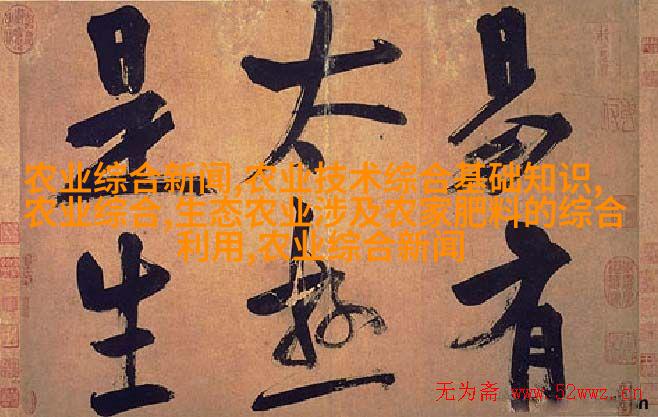 易有
太極
是生
农业综合新闻,农业技术综合基础知识,
农业综合,生态农业涉及农家肥料的综合
利用,农业综合新闻
无为斋 www.52wwz.cn
n